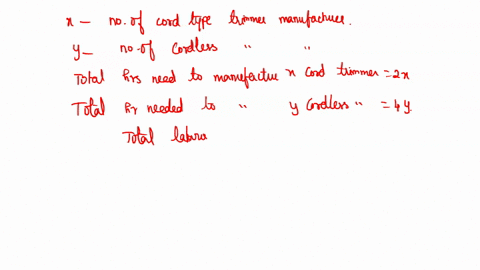 x – no. of cord type trimmer manufacture.
y – no. of Cordless " "
Total hrs need to manufactue x cord trimmer = 2x
Total hr needed to " y Cordless " = 4y
Total labur